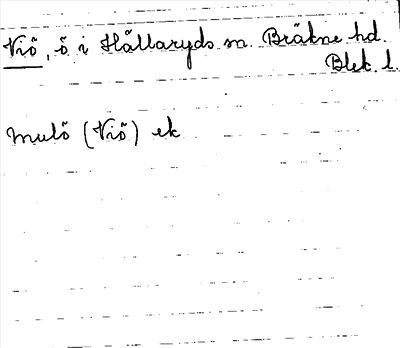 Viö, ö i Hällaryds sn. Bräkne hd.
Blek. l.
Mulö (Viö) ek